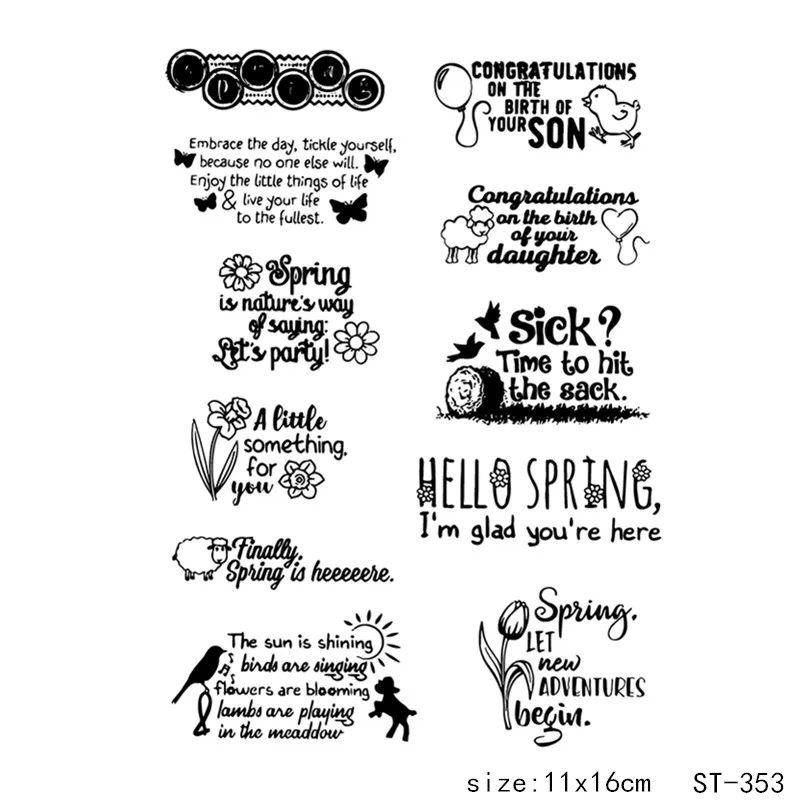 Embrace the day, tickle yourself,
because no one else will.
Enjoy the little things of life
& live your life
to the fullest.
Spring
is nature's way
of saying:
Let's party!
A little
something,
for
you
Finally,
Spring is heeeeere.
The sun is shining
birds are singing
flowers are blooming
lambs are playing
in the meaddow
CONGRATULATIONS
ON THE
BIRTH OF
YOUR SON
Congratulations
on the birth
of your
daughter
Sick?
Time to hit
the sack.
HELLO SPRING,
I'm glad you're here
Spring.
LET
new
ADVENTURES
begin.
size:11x16cm ST-353